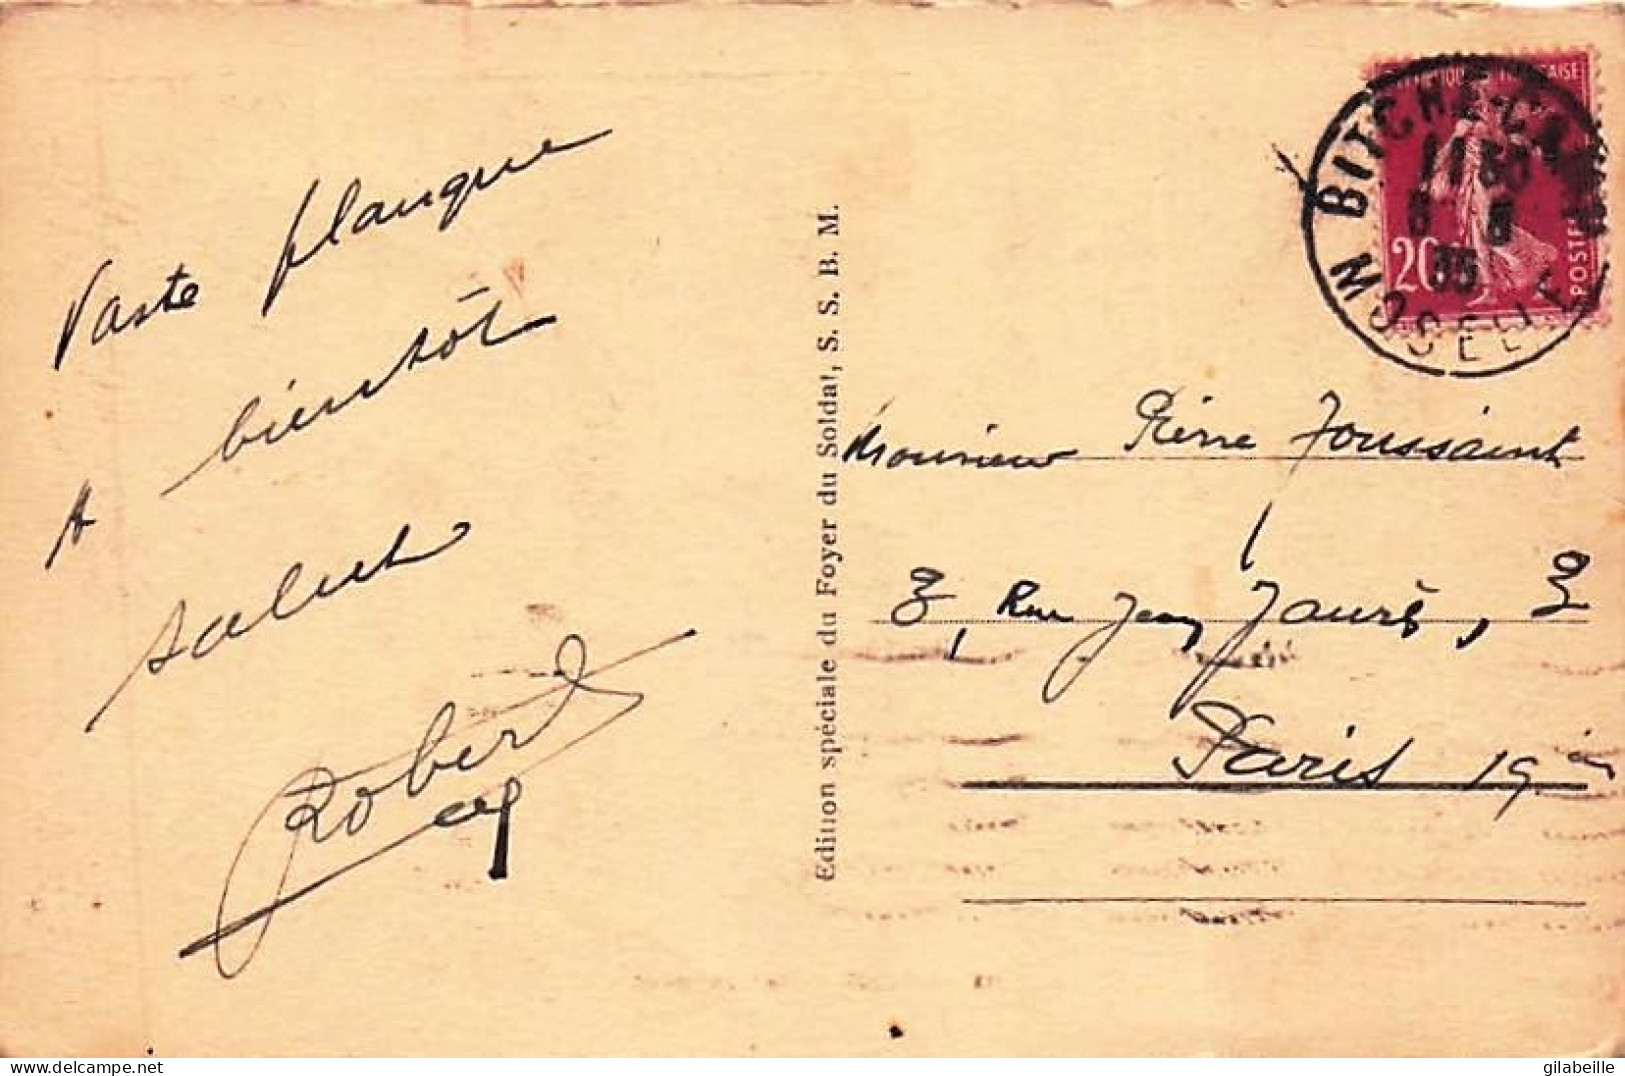 Vaste planque
A bientôt
salut
Robert
Edition spéciale du Foyer du Soldat, S. S. B. M.
BITCHE-CAMP
11 50
35
MOSELLE
FRANÇAISE
20
POSTES
Monsieur Pierre Toussaint
3, Rue Jean Jaurès, 3
Paris 19
delcampe.net
gilabeille